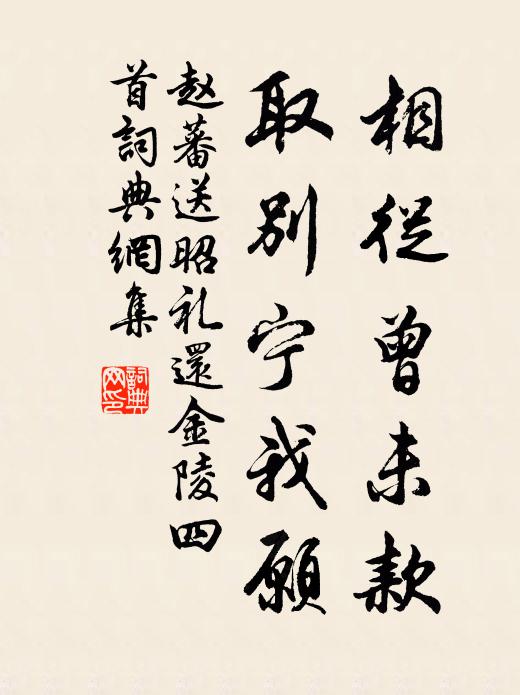 相從曾未款
取别宁我願
赵蕃送昭礼還金陵四
首詞典網集
詞典
网印